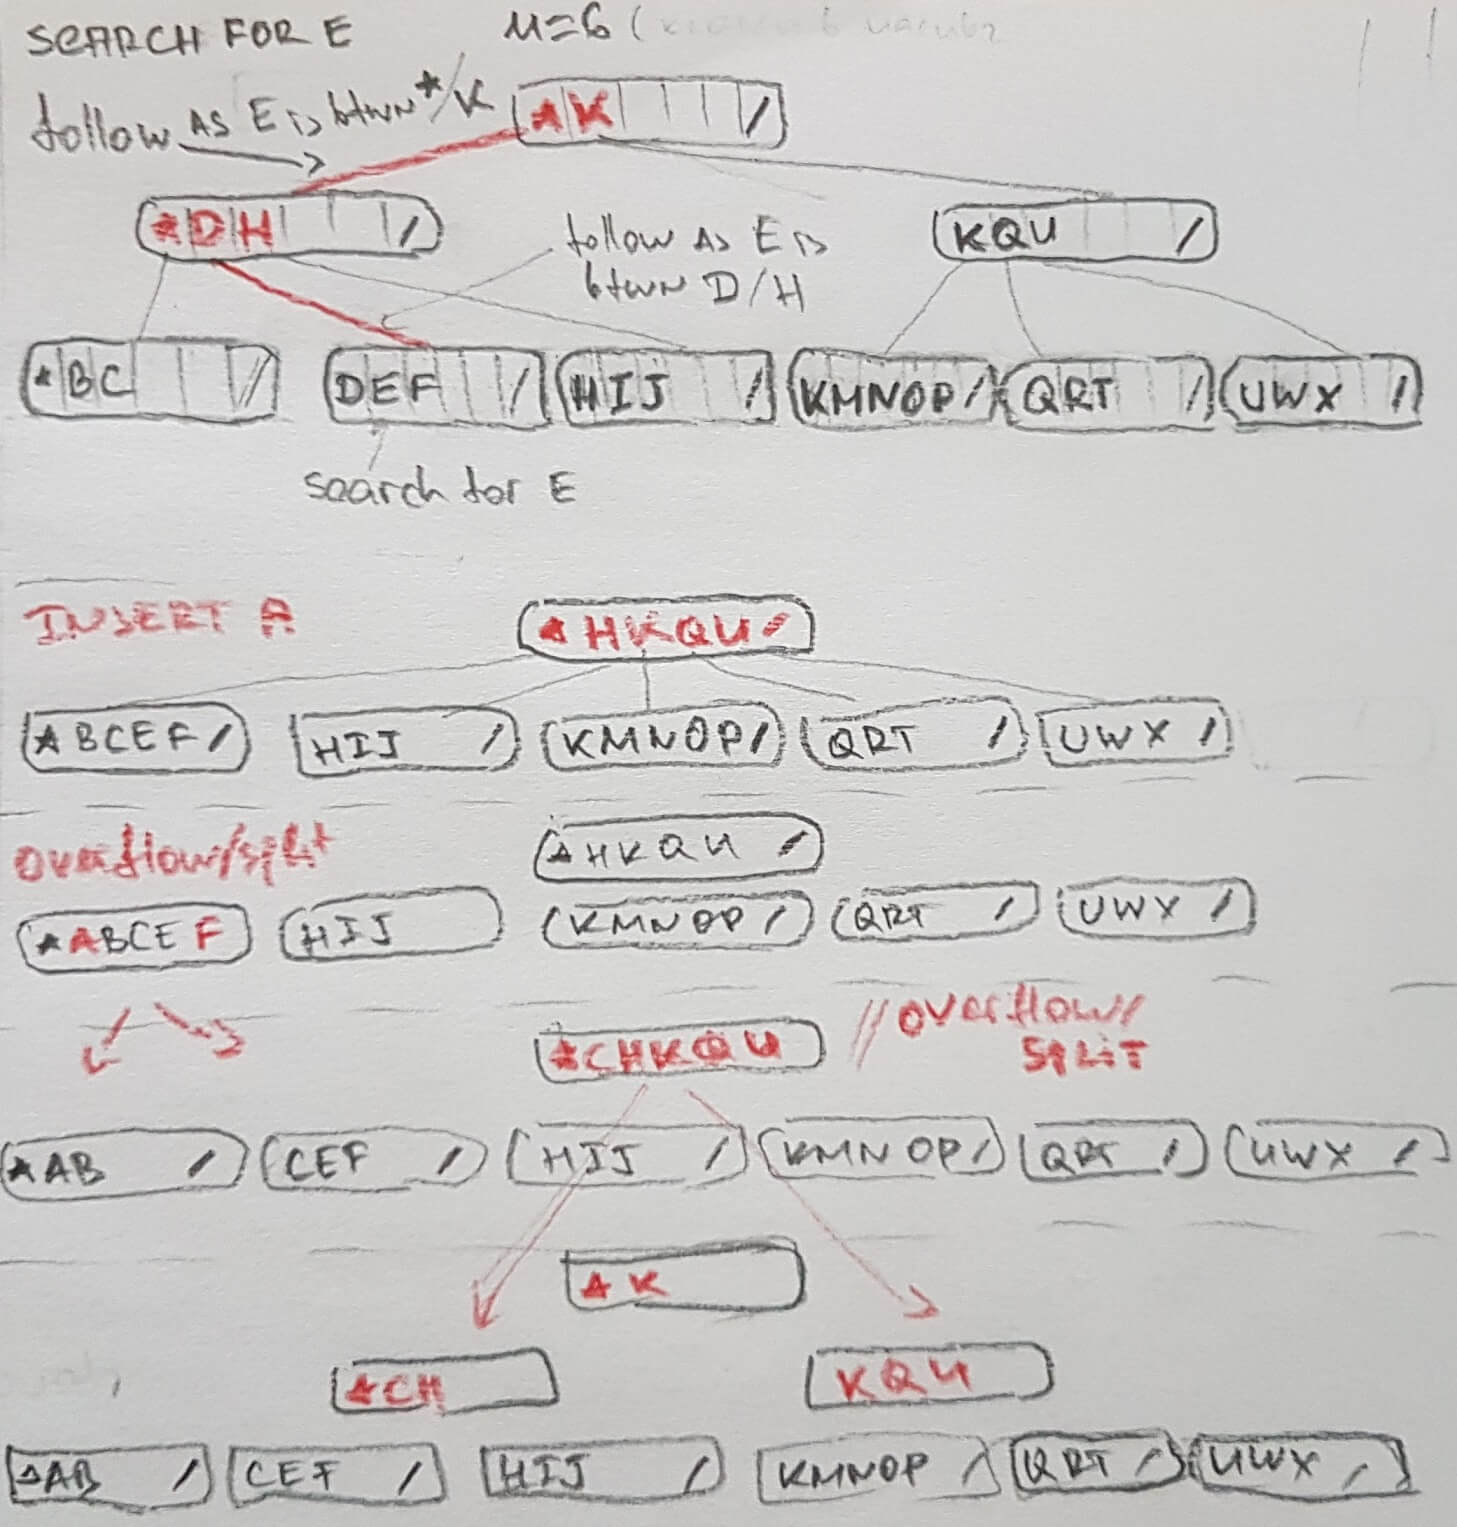 SEARCH FOR E M=6 (
follow AS E is btwn */K
* K
* D H
follow AS E is
btwn D/H
K Q U
* B C
D E F
H I J
K M N O P
Q R T
U W X
search for E
INSERT A
* H K Q U
* B C E F
H I J
K M N O P
Q R T
U W X
overflow/split
* H K Q U
* A B C E F
H I J
K M N O P
Q R T
U W X
* C H K Q U
// overflow/
SPLIT
* A B
C E F
H I J
K M N O P
Q R T
U W X
* K
* C H
K Q U
* A B
C E F
H I J
K M N O P
Q R T
U W X